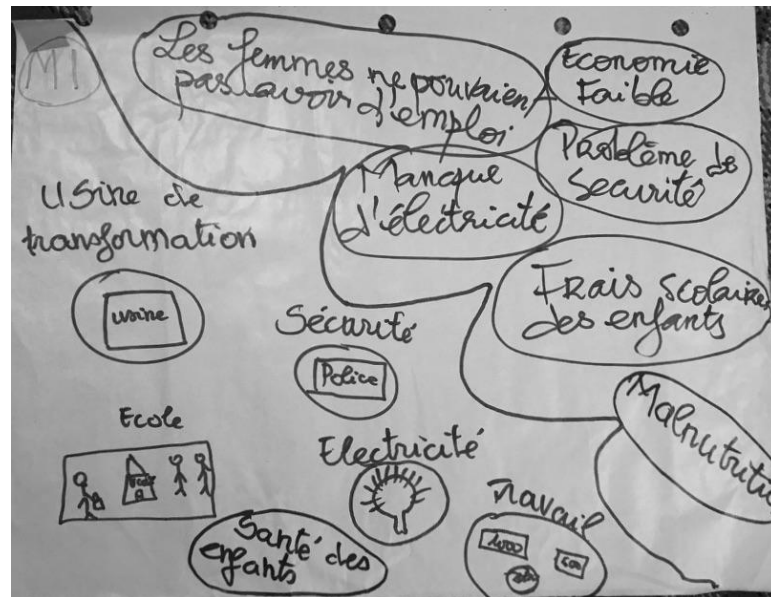 M1
Les femmes ne pouvaien
pas avoir d'emploi
Economie
Faible
Problème de
Securité
Manque
d'électricité
Frais scolaires
des enfants
Malnutritio
Usine de
transformation
usine
Sécurité
Police
Ecole
Electricité
Travail
1000
500
Santé des
enfants